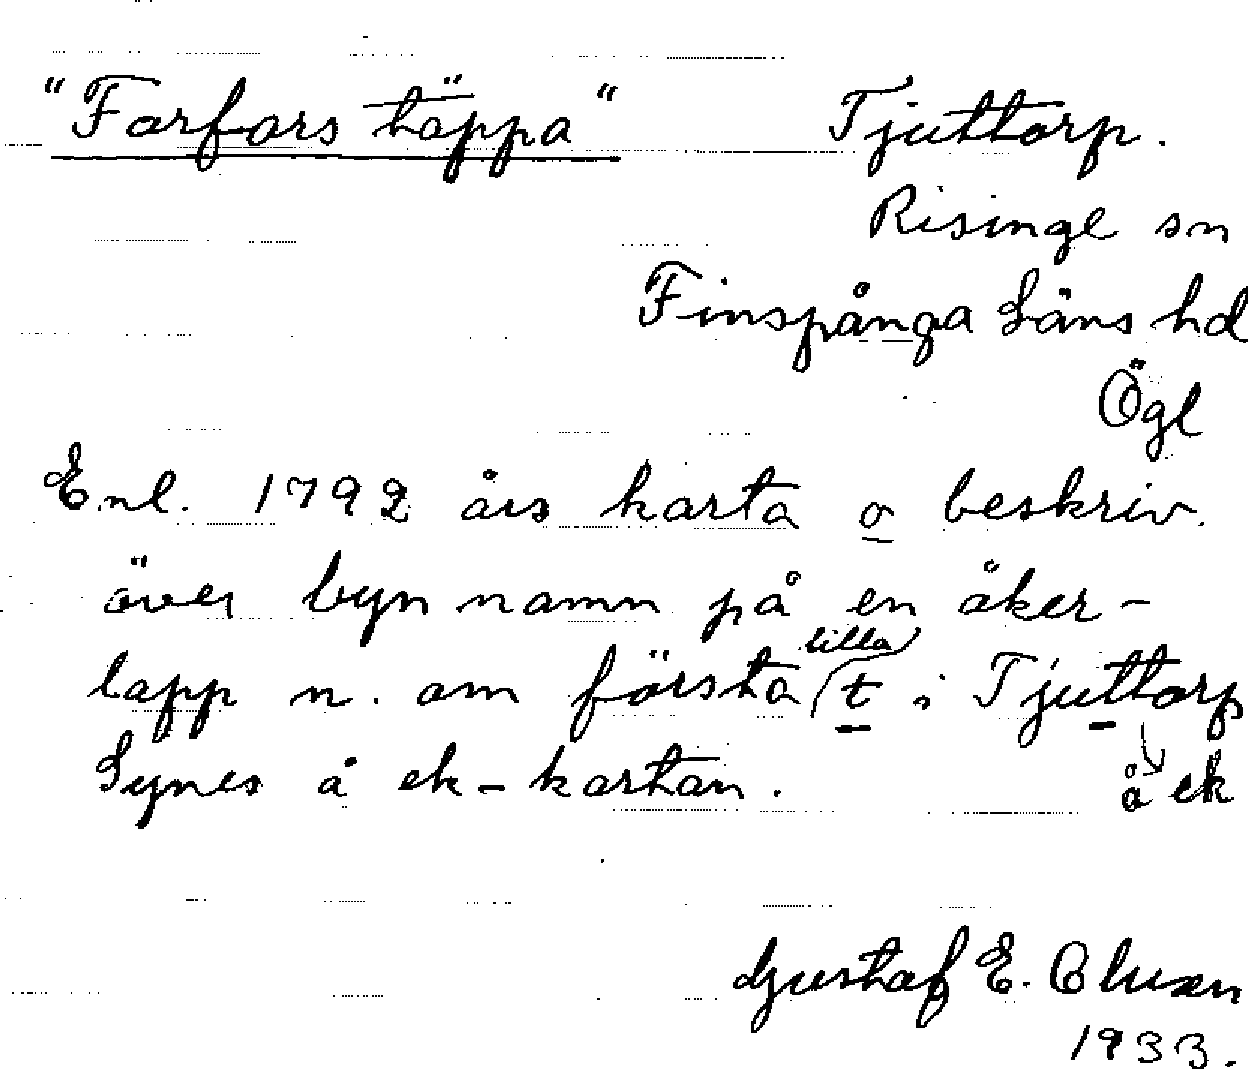 "Farfors täppa" Tjuttorp.
Risinge sn
Finspånga Läns hd
Ögl
Enl. 1792 års karta o beskriv.
över byn namn på en åker-
lapp n. om första lilla t i Tjuttorp
Synes å ek-kartan. å ek
Gustaf E.
1933.